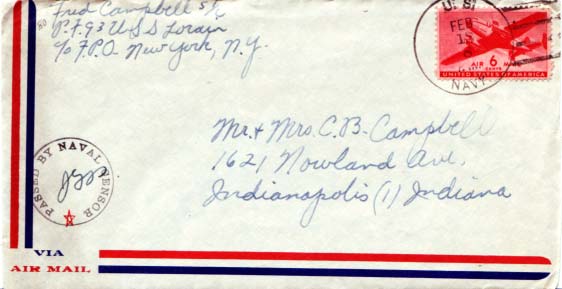 Fred Campbell S 1/c
P.F. 93 U.S.S Lorain
c/o F.P.O. New York, N.Y.
U.S.
FEB
15
NAVY
AIR 6 MAIL
CENTS
UNITED STATES OF AMERICA
Mr. + Mrs. C. B. Campbell
1621 Nowland Ave.
Indianapolis (1) Indiana
PASSED BY NAVAL CENSOR
VIA
AIR MAIL